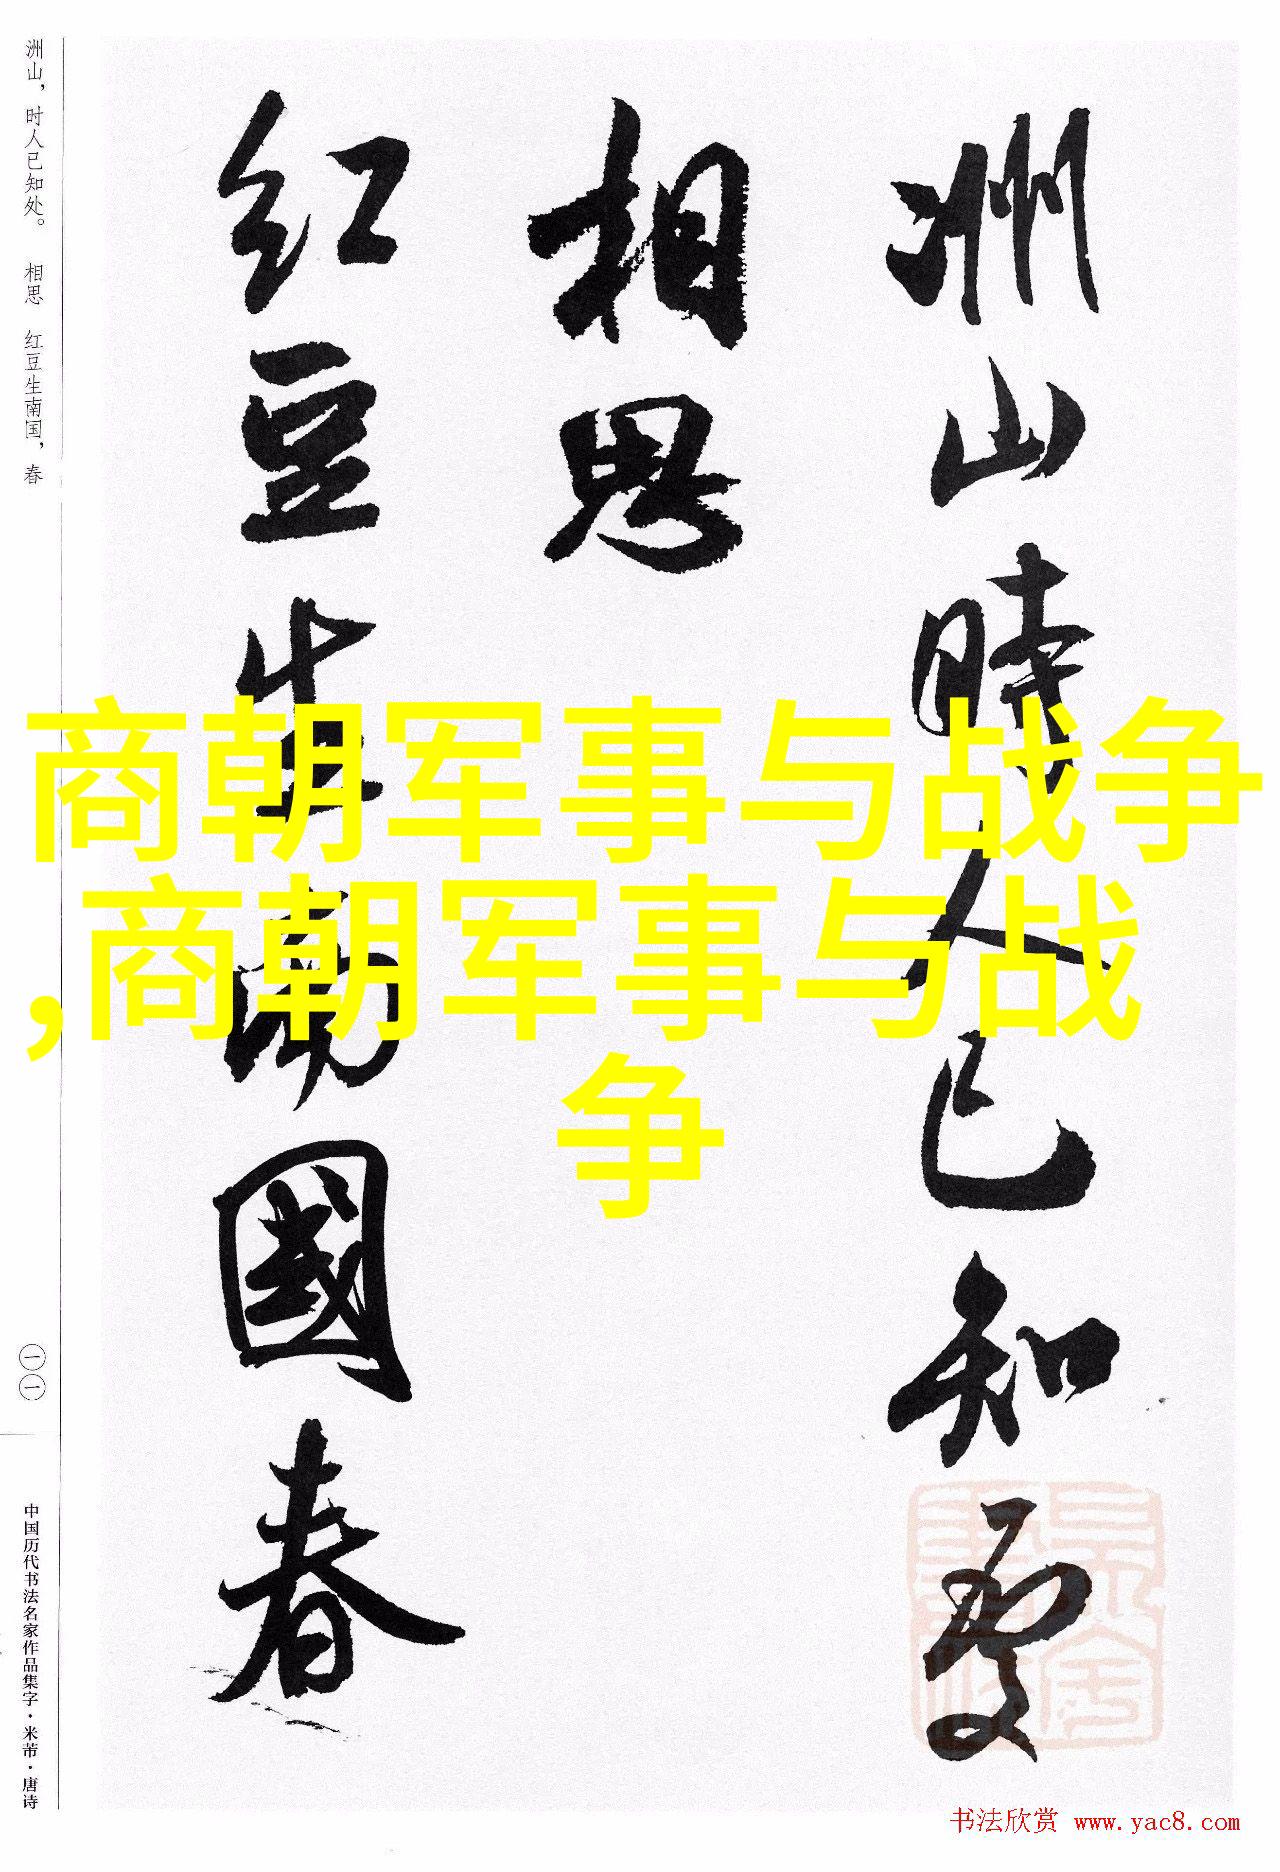 洲山時人已知處
相思
红豆生南國春
商朝军事与战争
,商朝军事与战
争
洲山，时人已知处。 相思 红豆生南国，春
一一
中国历代书法名家作品集字·米芾·唐诗
书法欣赏 www.yac8.com